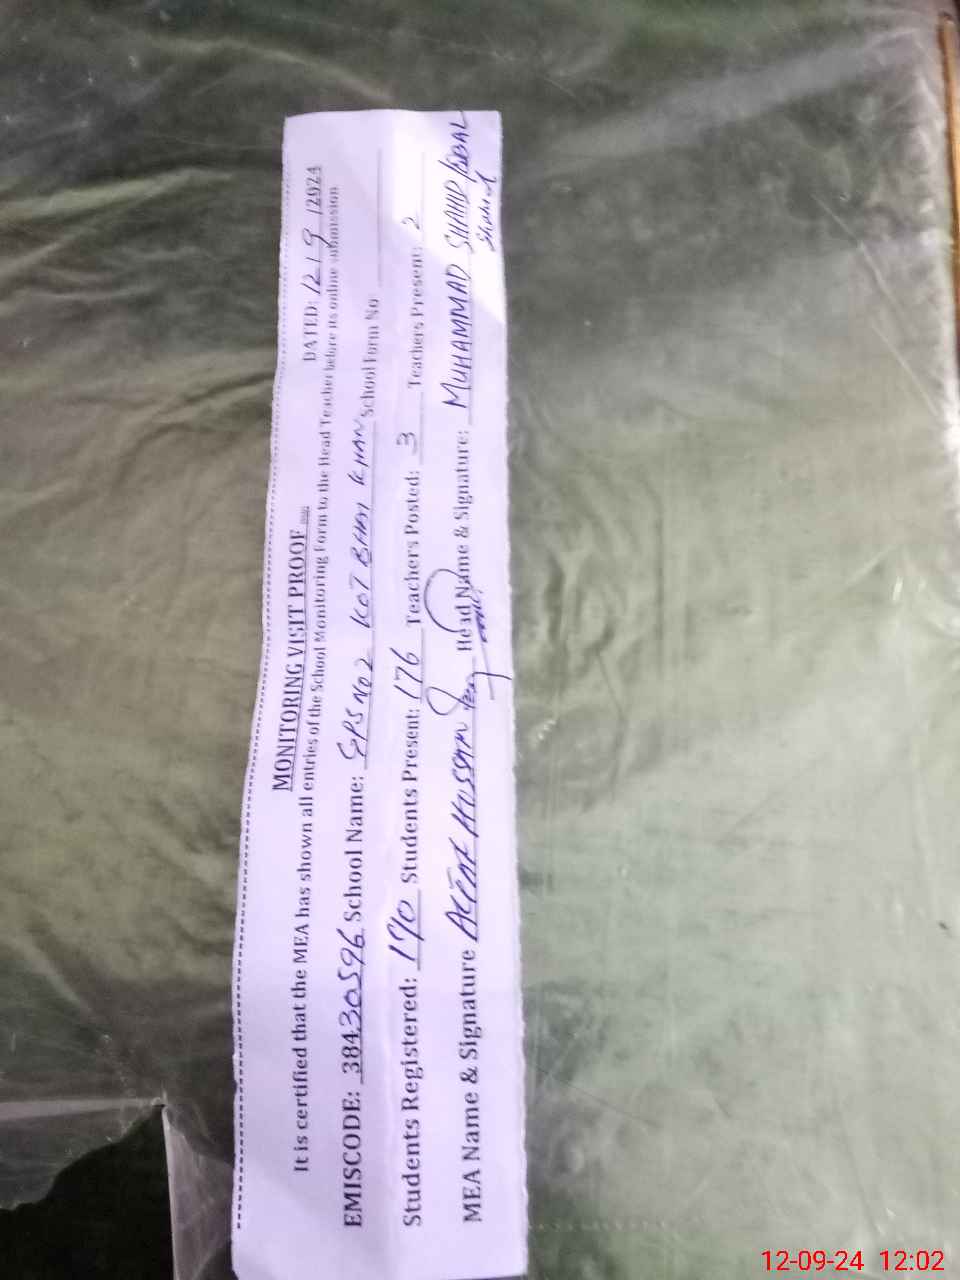 MONITORING VISIT PROOF
DATED: 12 / 9 / 2024
It is certified that the MEA has shown all entries of the School Monitoring Form to the Head Teacher before its online submission.
EMISCODE: 38430596 School Name: GPS No 2 KOT BHAI KHAN School Form No
Students Registered: 190 Students Present: 176 Teachers Posted: 3 Teachers Present: 2
MEA Name & Signature Head Name & Signature: MUHAMMAD SHAHID IQBAL
Shahid
12-09-24 12:02